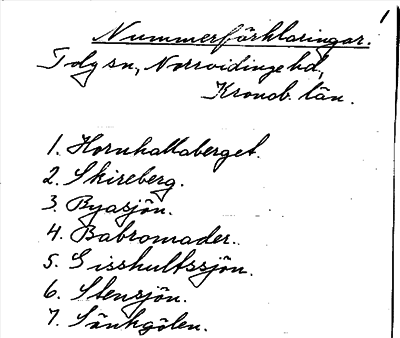 1
Nummerförklaringar.
Tolg sn, Norrvidinge hd,
Kronob. län.
1. Hornhallaberget.
2. Skireberg.
3. Byasjön.
4. Babromader.
5. Gisshultssjön.
6. Stensjön.
7. Sänkgölen.